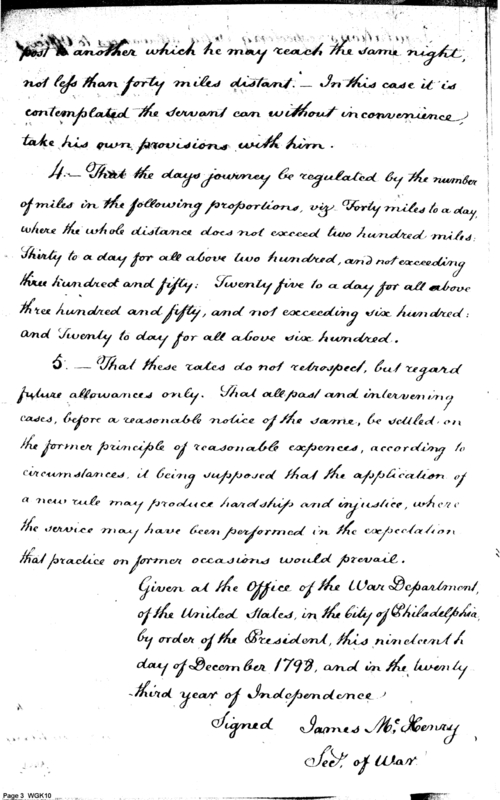 post to another which he may reach the same night,
not less than forty miles distant. — In this case it is
contemplated the servant can without inconvenience,
take his own provisions with him.
4. — That the days journey be regulated by the number
of miles in the following proportions, viz. Forty miles to a day,
where the whole distance does not exceed two hundred miles:
Thirty to a day for all above two hundred, and not exceeding
three hundred and fifty: Twenty five to a day for all above
three hundred and fifty, and not exceeding six hundred:
and Twenty to day for all above six hundred.
5. — That these rates do not retrospect, but regard
future allowances only. That all past and intervening
cases, before a reasonable notice of the same, be settled on
the former principle of reasonable expences, according to
circumstances, it being supposed that the application of
a new rule may produce hardship and injustice, where
the service may have been performed in the expectation
that practice on former occasions would prevail.
Given at the Office of the War Department,
of the United States, in the City of Philadelphia,
by order of the President, this nineteenth
day of December 1798, and in the twenty
third year of Independence
Signed James McHenry
Secy. of War
Page 3 WGK10